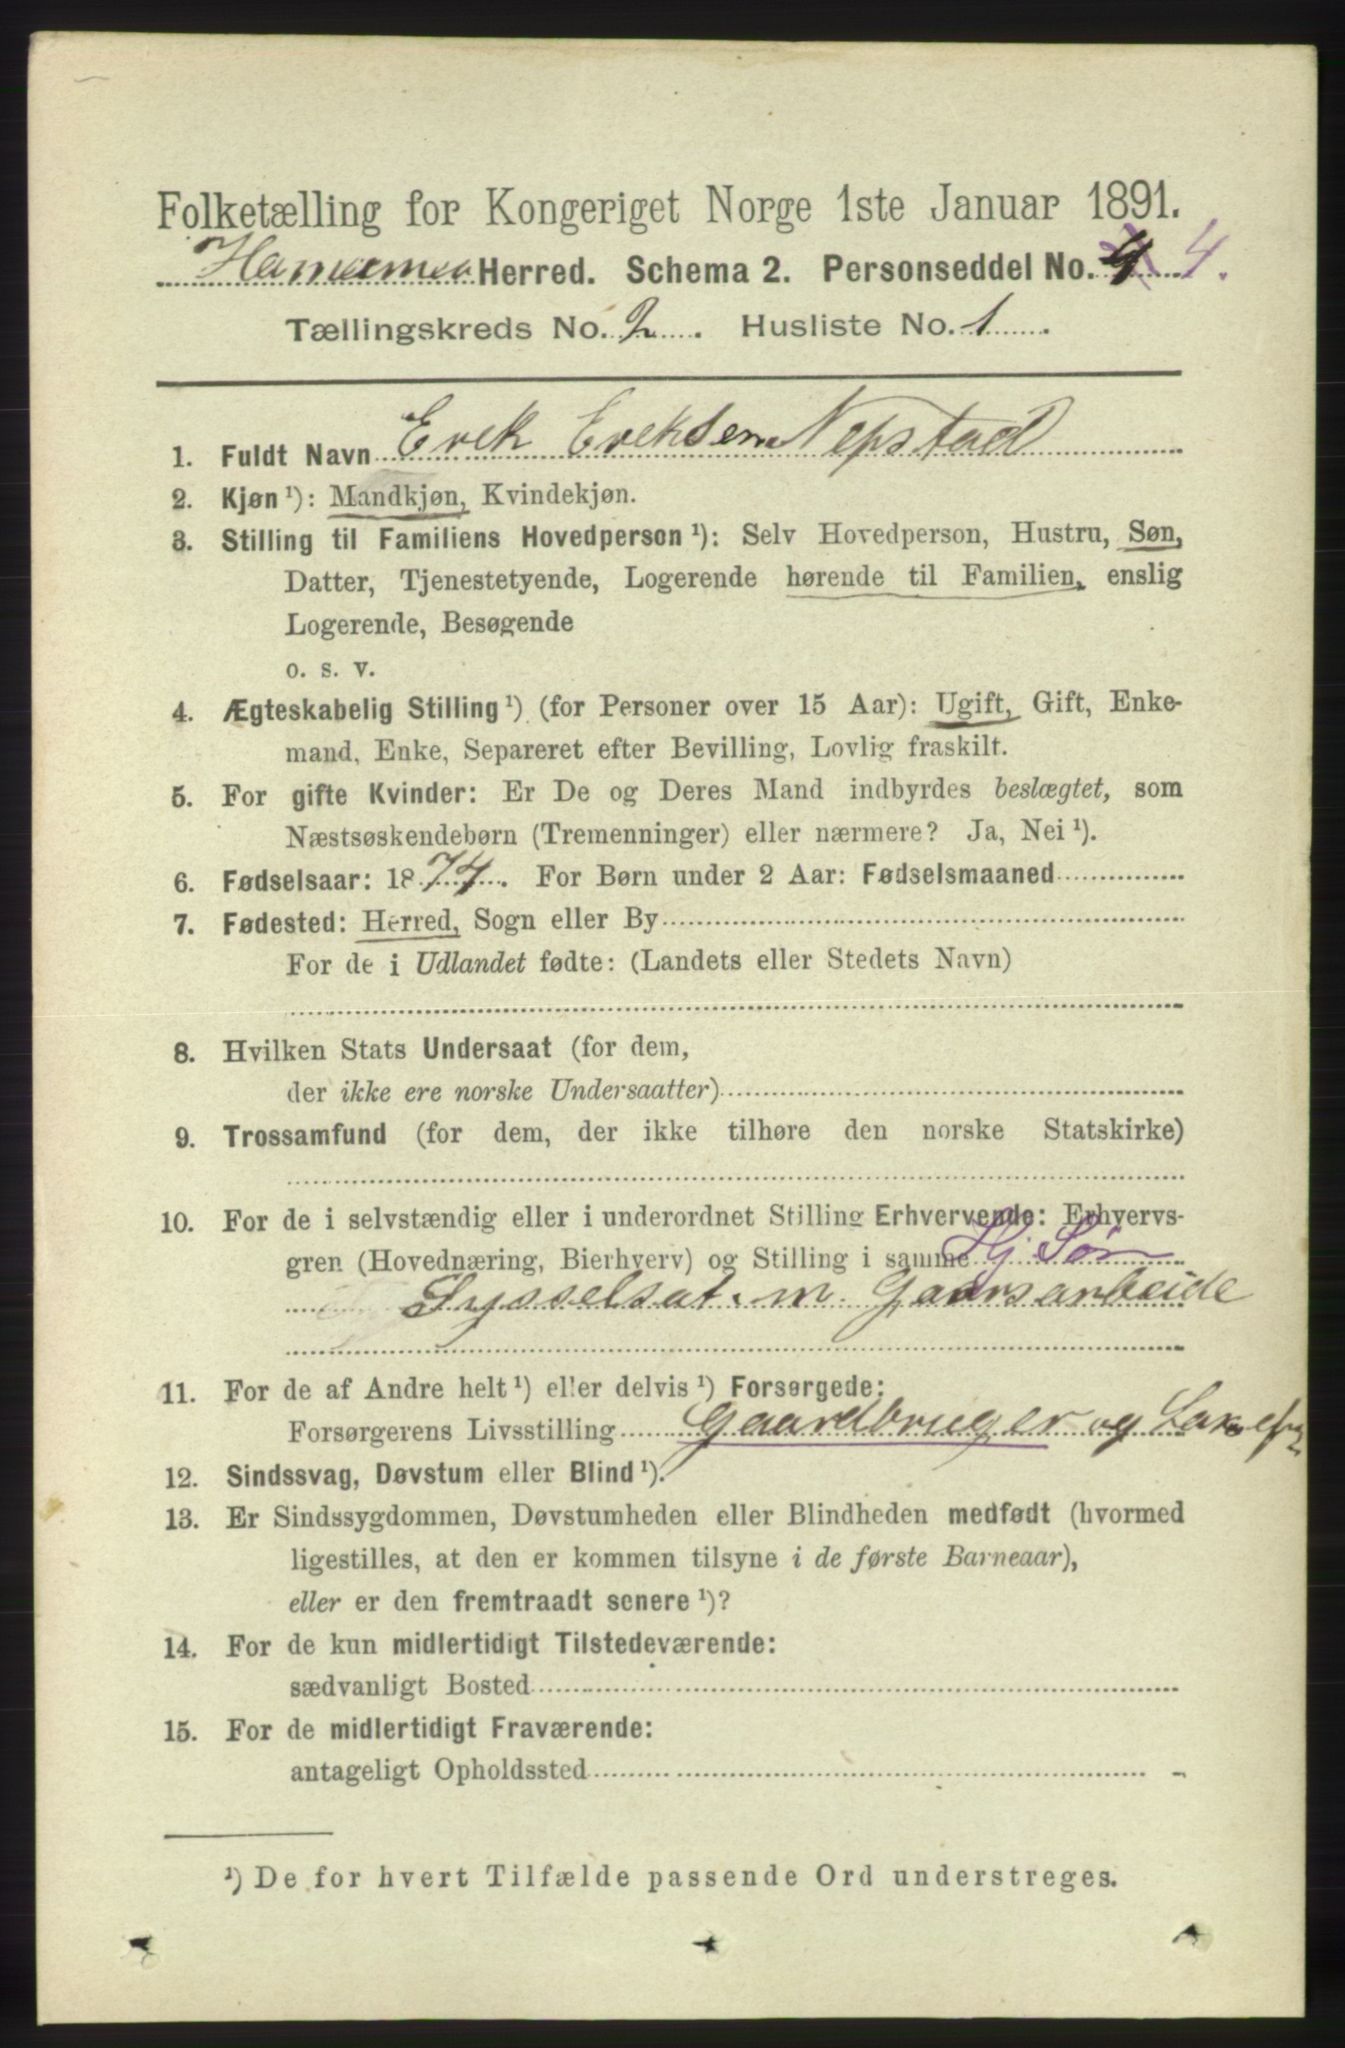 Folketælling for Kongeriget Norge 1ste Januar 1891.
Herred. Schema 2. Personseddel No. 4 4.
Tællingskreds No. 2. Husliste No. 1.
1. Fuldt Navn Erek Ereksen Nepstad
2. Kjøn ¹): Mandkjøn, Kvindekjøn.
3. Stilling til Familiens Hovedperson ¹): Selv Hovedperson, Hustru, Søn,
Datter, Tjenestetyende, Logerende hørende til Familien, enslig
Logerende, Besøgende
o. s. v.
4. Ægteskabelig Stilling ¹) (for Personer over 15 Aar): Ugift, Gift, Enke-
mand, Enke, Separeret efter Bevilling, Lovlig fraskilt.
5. For gifte Kvinder: Er De og Deres Mand indbyrdes beslægtet, som
Næstsøskendebørn (Tremenninger) eller nærmere? Ja, Nei ¹).
6. Fødselsaar: 1874. For Børn under 2 Aar: Fødselsmaaned
7. Fødested: Herred, Sogn eller By
For de i Udlandet fødte: (Landets eller Stedets Navn)
8. Hvilken Stats Undersaat (for dem,
der ikke ere norske Undersaatter)
9. Trossamfund (for dem, der ikke tilhøre den norske Statskirke)
10. For de i selvstændig eller i underordnet Stilling Erhvervende: Erhvervs-
gren (Hovednæring, Bierhverv) og Stilling i samme Hj. Søn
Sysselsat. m. Gaarsarbeide
11. For de af Andre helt ¹) eller delvis ¹) Forsørgede:
Forsørgerens Livsstilling Gaardbruger og
12. Sindssvag, Døvstum eller Blind ¹).
13. Er Sindssygdommen, Døvstumheden eller Blindheden medfødt (hvormed
ligestilles, at den er kommen tilsyne i de første Barneaar),
eller er den fremtraadt senere ¹)?
14. For de kun midlertidigt Tilstedeværende:
sædvanligt Bosted
15. For de midlertidigt Fraværende:
antageligt Opholdssted
¹) De for hvert Tilfælde passende Ord understreges.